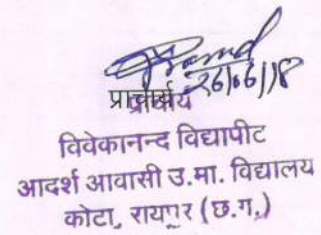 26/06/18
प्राचार्य
विवेकानन्द विद्यापीट
आदर्श आवासी उ.मा. विद्यालय
कोटा, रायपुर (छ.ग.)